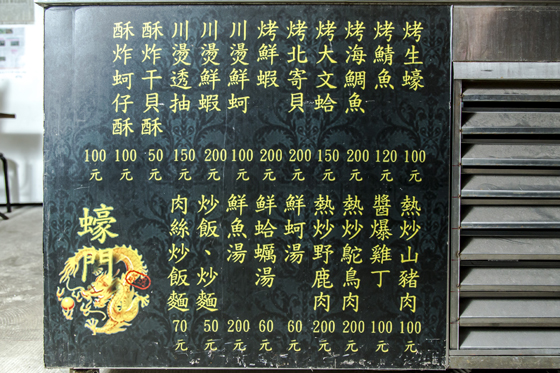 烤生蠔 100元
烤鯖魚 120元
烤海鯛魚 200元
烤大文蛤 150元
烤北寄貝 200元
烤鮮蝦 200元
川燙鮮蚵 100元
川燙鮮蝦 200元
川燙透抽 150元
酥炸干貝酥 50元
酥炸蚵仔酥 100元
100元
熱炒山豬肉 100元
醬爆雞丁 100元
熱炒鴕鳥肉 200元
熱炒野鹿肉 200元
鮮蚵湯 60元
鮮蛤蠣湯 60元
鮮魚湯 200元
炒飯、炒麵 50元
肉絲炒飯麵 70元
蠔門